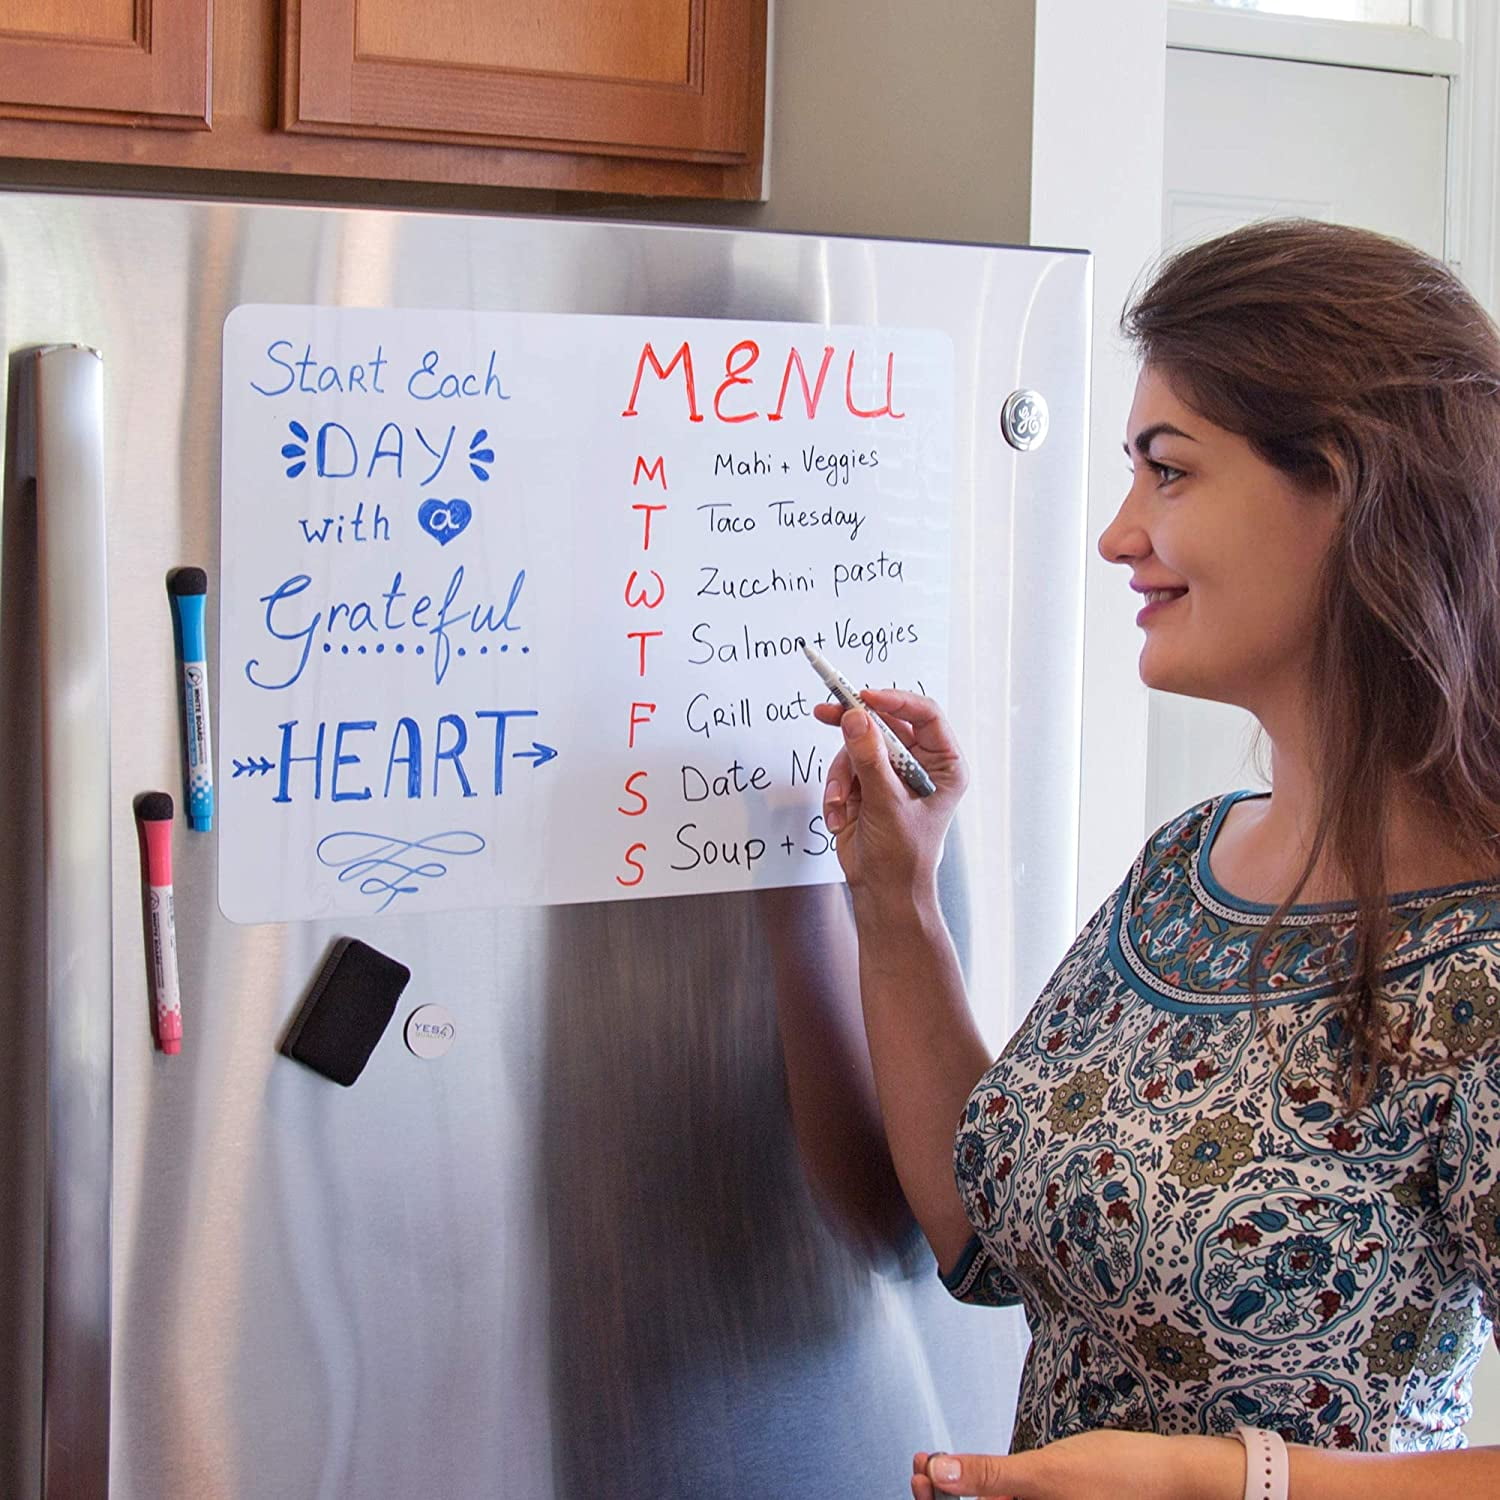 Start Each
DAY
with a
Grateful
HEART
MENU
M Mahi + Veggies
T Taco Tuesday
W Zucchini pasta
T Salmon + Veggies
F Grill out
S Date
S Soup +
GE
WHITE BOARD
YES4